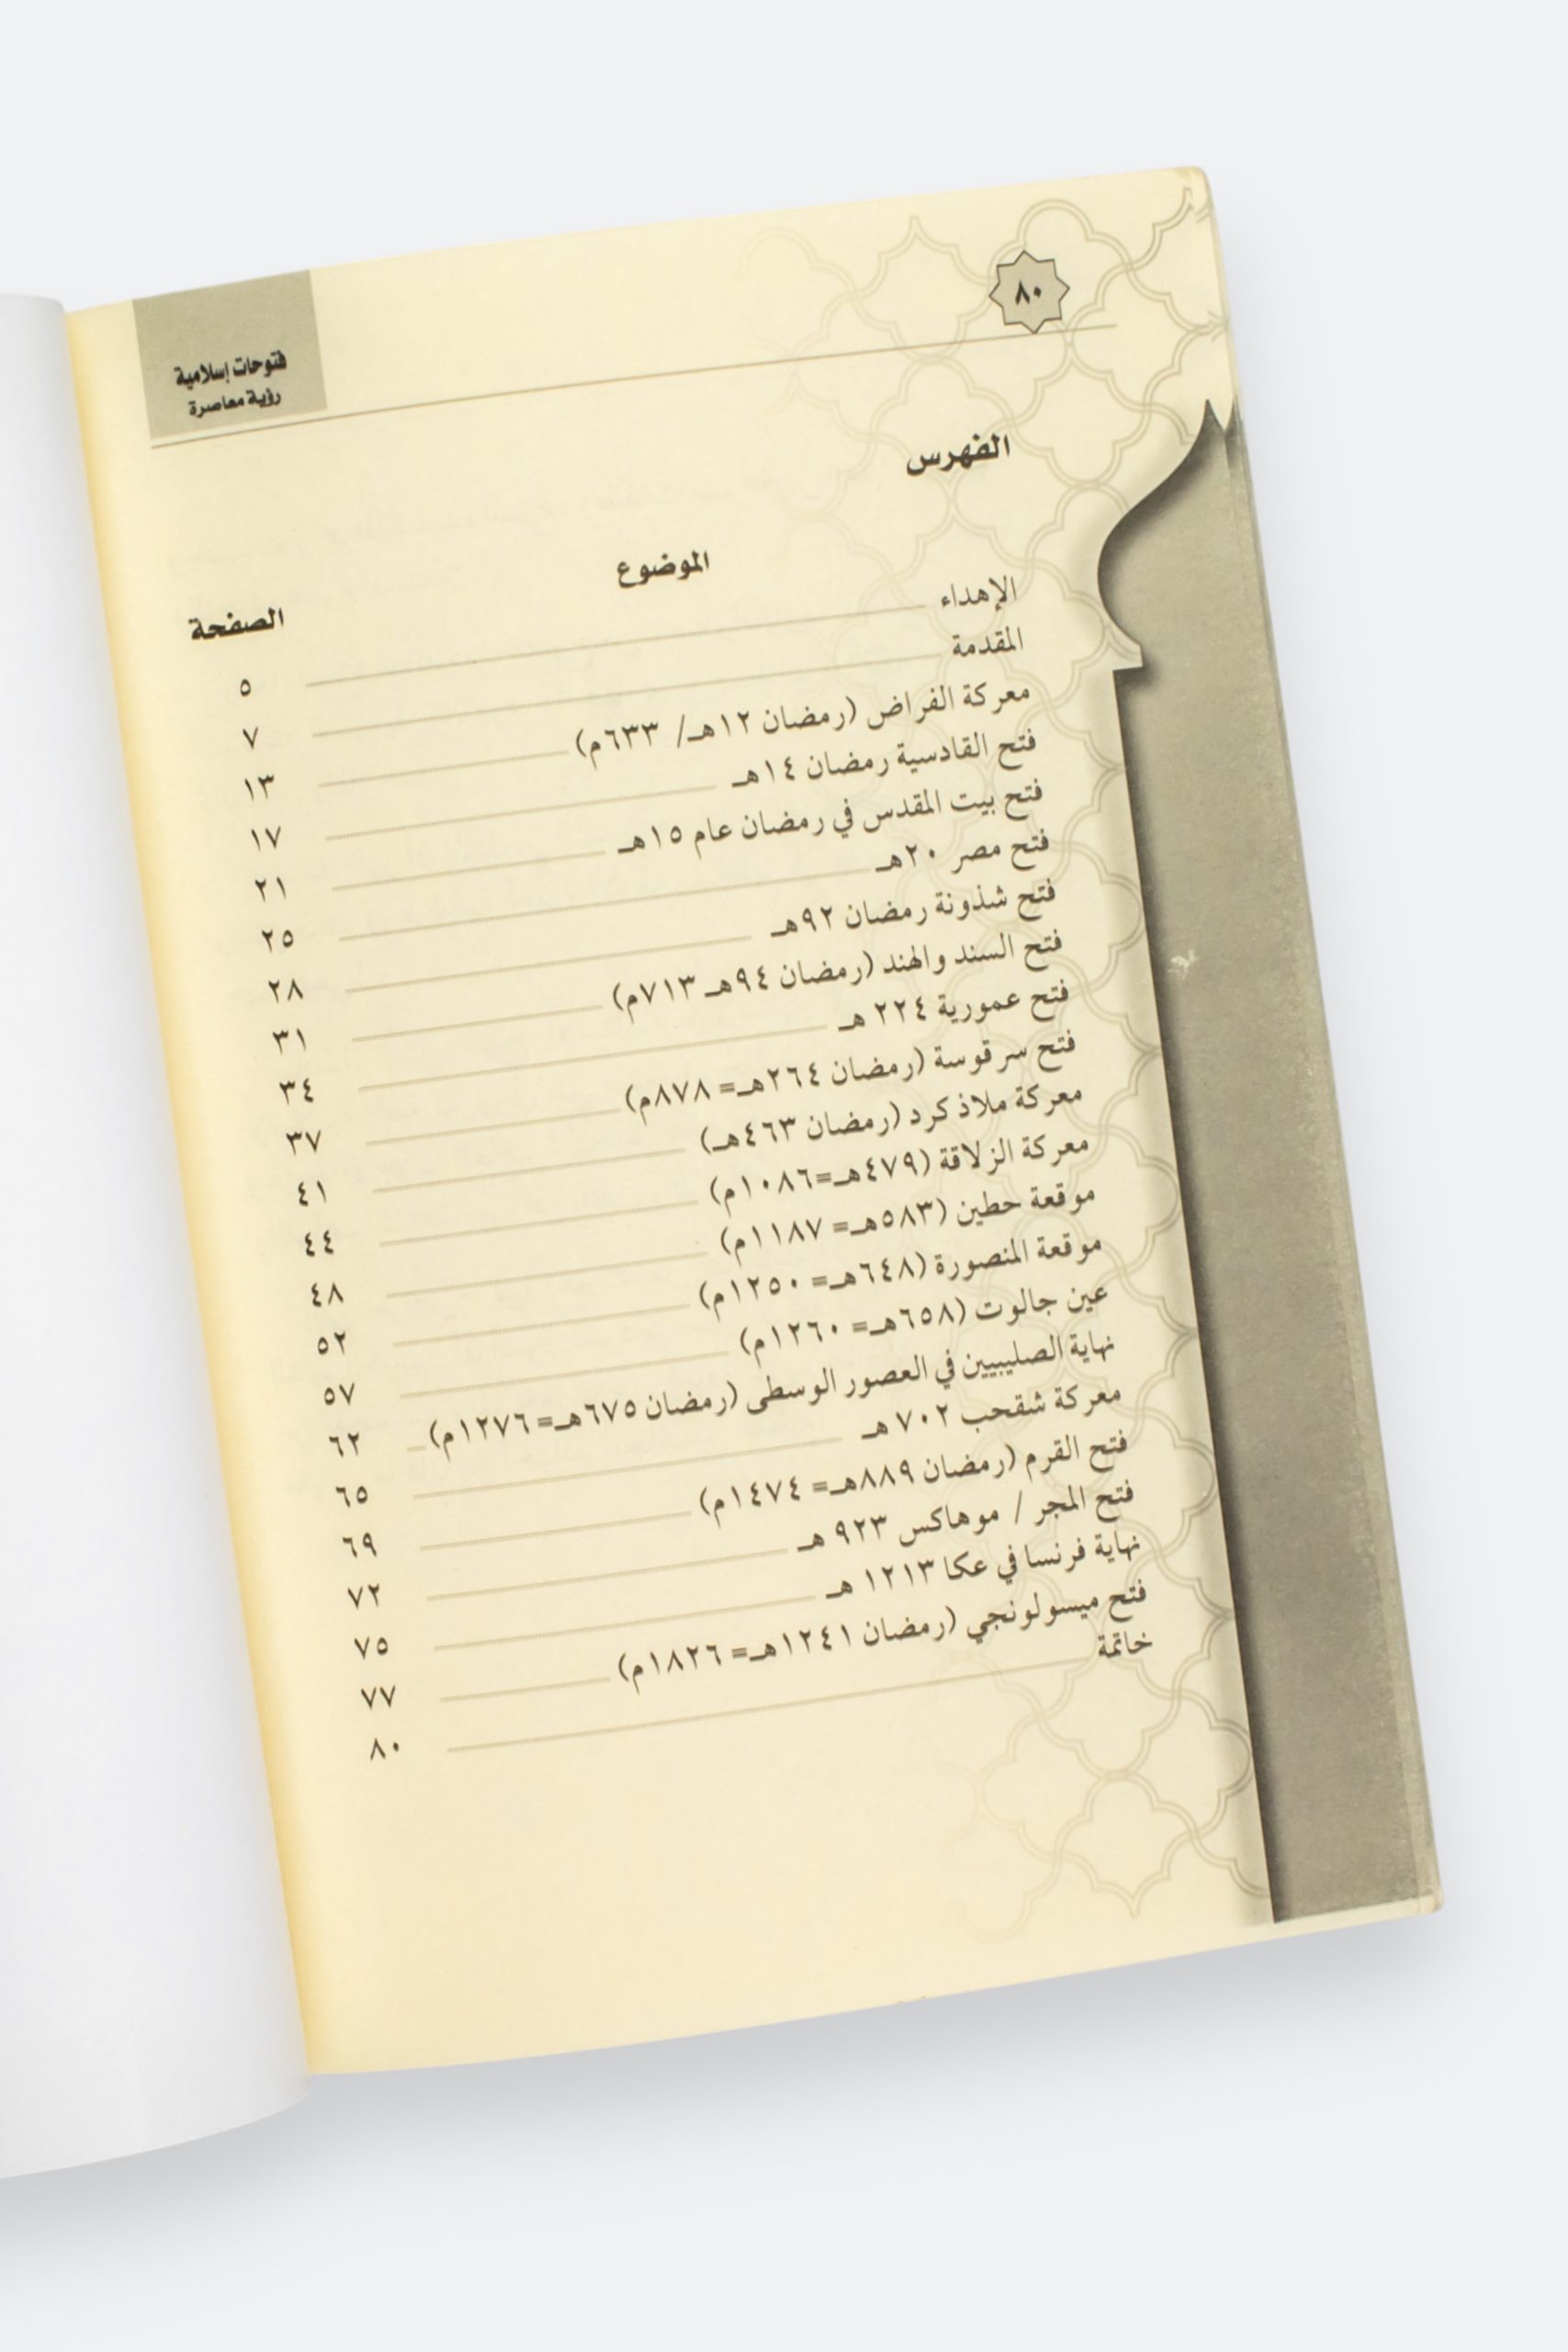 ٨٠
فتوحات إسلامية
رؤية معاصرة
الفهرس
الموضوع الصفحة
الإهداء ٥
المقدمة ٧
معركة الفراض (رمضان ١٢هـ/ ٦٣٣م) ١٣
فتح القادسية رمضان ١٤هـ ١٧
فتح بيت المقدس في رمضان عام ١٥هـ ٢١
فتح مصر ٢٠هـ ٢٥
فتح شذونة رمضان ٩٢هـ ٢٨
فتح السند والهند (رمضان ٩٤هـ ٧١٣م) ٣١
فتح عمورية ٢٢٤ هـ ٣٤
فتح سرقوسة (رمضان ٢٦٤هـ= ٨٧٨م) ٣٧
معركة ملاذكرد (رمضان ٤٦٣هـ) ٤١
معركة الزلاقة (٤٧٩هـ=١٠٨٦م) ٤٤
موقعة حطين (٥٨٣هـ= ١١٨٧م) ٤٨
موقعة المنصورة (٦٤٨هـ= ١٢٥٠م) ٥٢
عين جالوت (٦٥٨هـ= ١٢٦٠م) ٥٧
نهاية الصليبيين في العصور الوسطى (رمضان ٦٧٥هـ= ١٢٧٦م) ٦٢
معركة شقحب ٧٠٢هـ ٦٥
فتح القرم (رمضان ٨٨٩هـ= ١٤٧٤م) ٦٩
فتح المجر / موهاكس ٩٢٣ هـ ٧٢
نهاية فرنسا في عكا ١٢١٣ هـ ٧٥
فتح ميسولونجي (رمضان ١٢٤١هـ= ١٨٢٦م) ٧٧
خاتمة ٨٠